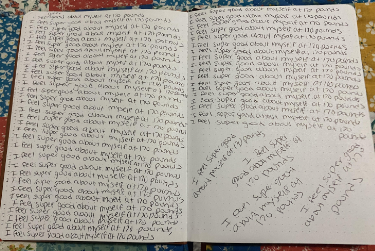 I feel super good about myself at 170 pounds
I feel super good about myself at 170 pounds
I feel super good about myself at 170 pounds
I feel super good about myself at 170 pounds
I feel super good about myself at 170 pounds
I feel super good about myself at 170 pounds
I feel super good about myself at 170 pounds
I feel super good about myself at 170 pounds
I feel super good about myself at 170 pounds
I feel super good about myself at 170 pounds
I feel super good about myself at 170 pounds
I feel super good about myself at 170 pounds
I feel super good about myself at 170 pounds
I feel super good about myself at 170 pounds
I feel super good about myself at 170 pounds
I feel super good about myself at 170 pounds
I feel super good about myself at 170 pounds
I feel super good about myself at 170 pounds
I feel super good about myself at 170 pounds
I feel super good about myself at 170 pounds
I feel super good about myself at 170 pounds
I feel super good about myself at 170 pounds
I feel super good about myself at 170 pounds
I feel super good about myself at 170 pounds
I feel super good about myself at 170 pounds
I feel super good about myself at 170 pounds
I feel super good about myself at 170 pounds
I feel super good about myself at 170 pounds
I feel super good about myself at 170 pounds
I feel super good about myself at 170 pounds
I feel super good about myself at 170 pounds
I feel super good about myself at 170 pounds
I feel super good about myself at 170 pounds
I feel super good about myself at 170 pounds
I feel super good about myself at 170 pounds
I feel super good about myself at 170 pounds
I feel super good about myself at 170 pounds
I feel super good about myself at 170 pounds
I feel super good about myself at 170
pounds
I feel super good
about myself at 170 pounds
I feel super
good about myself at
170 pounds
I feel super good
about myself at
170 pounds
I feel super good
about myself at
170 pounds